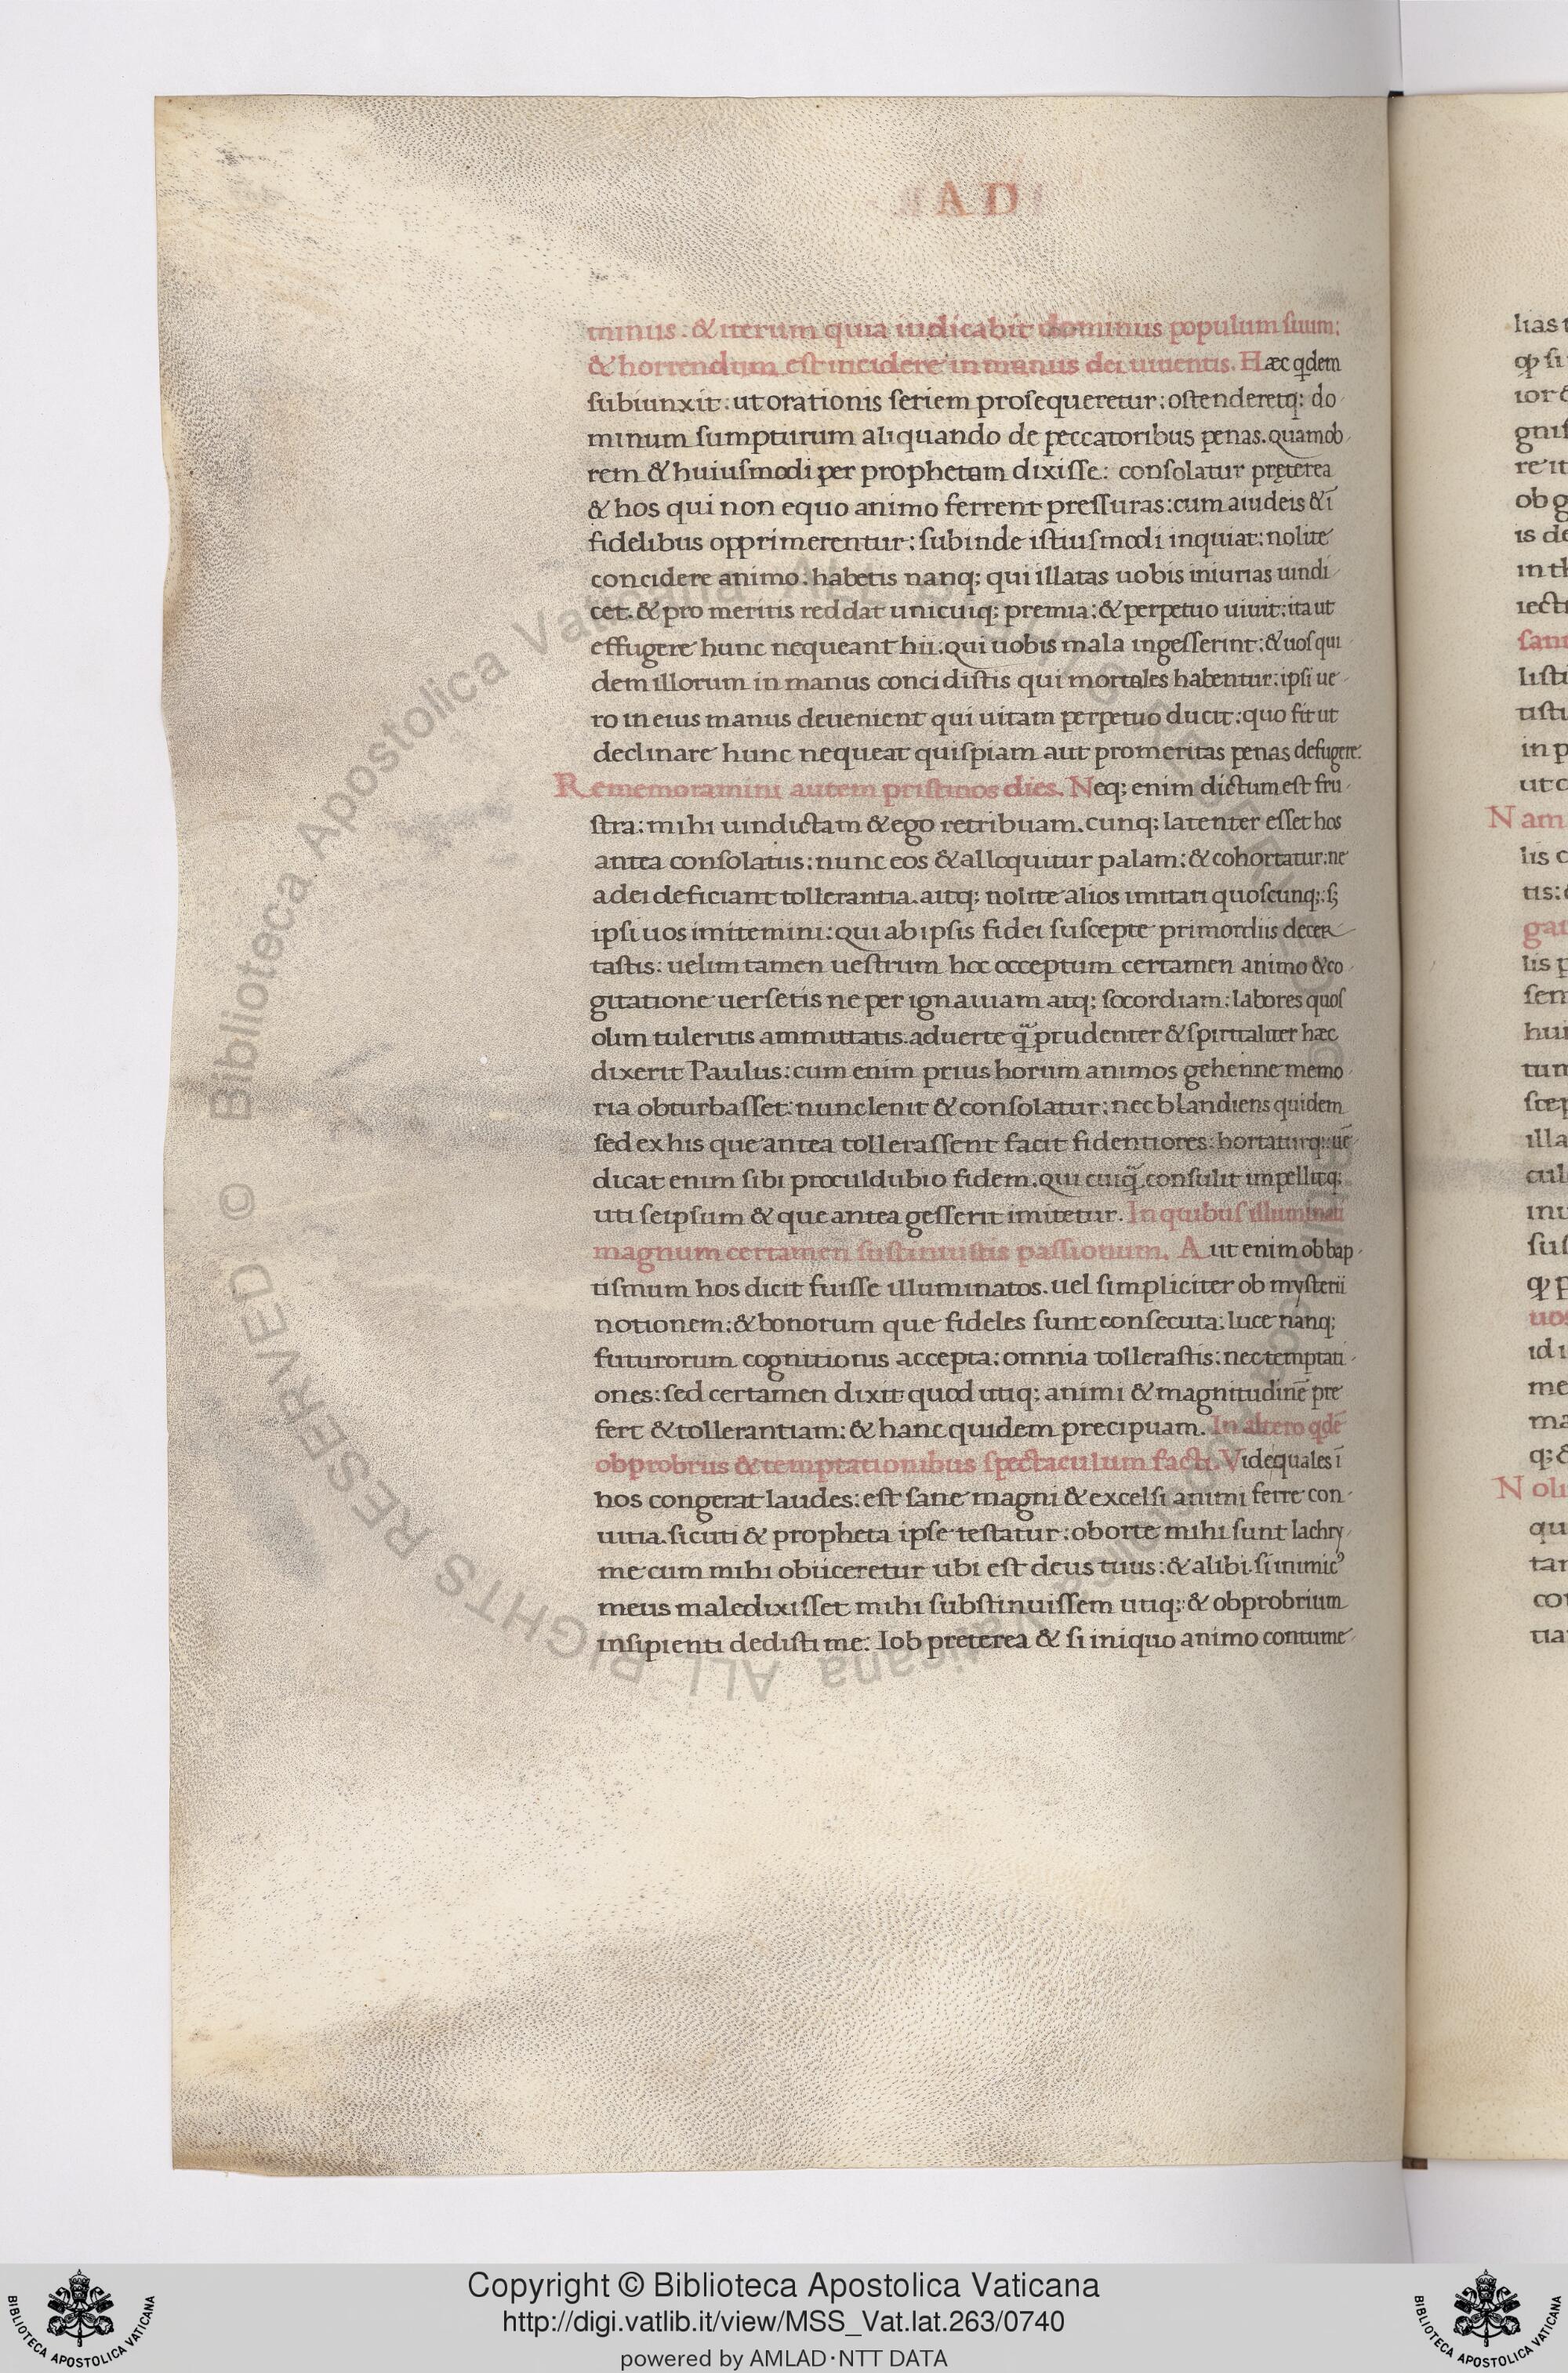 AD
minus. & iterum quia iudicabit dominus populum suum:
& horrendum est incidere in manus dei uiuentis. Hæc qdem
subiunxit: ut orationis seriem prosequeretur: ostenderetq; do
minum sumpturum aliquando de peccatoribus penas. quamob
rem & huiusmodi per prophetam dixisse: consolatur pręterea
& hos qui non equo animo ferrent pressuras: cum a iudeis & ī
fidelibus opprimerentur: subinde istiusmodi inquiat: nolite
concidere animo: habetis nanq; qui illatas uobis iniurias uindi
cet. & pro meritis reddat unicuiq; premia: & perpetuo uiuit: ita ut
effugere hunc nequeant hii. qui uobis mala ingesserint: & uos qui
dem illorum in manus concidistis qui mortales habentur: ipsi ue
ro in eius manus deuenient qui uitam perpetuo ducit: quo fit ut
declinare hunc nequeat quispiam aut promeritas penas defugere.
Rememoramini autem pristinos dies. Neq; enim dictum est fru
stra: mihi uindictam & ego retribuam. cunq; latenter esset hos
antea consolatus: nunc eos & alloquitur palam: & cohortatur: ne
a dei deficiant tollerantia. aitq; nolite alios imitari quoscunq;: sȝ
ipsi uos imitemini: qui ab ipsis fidei suscepte primordiis decer
tastis: uelim tamen uestrum hoc occeptum certamen animo & co
gitatione uersetis ne per ignauiam atq; socordiam: labores quos
olim tuleritis ammittatis. aduerte q̃ prudenter & spiritaliter hæc
dixerit Paulus: cum enim prius horum animos gehenne memo
ria obturbasset: nunc lenit & consolatur: nec blandiens quidem
sed ex his que antea tollerassent facit fidentiores: hortaturq;: uē
dicat enim sibi proculdubio fidem. qui cuiq̃ consulit impellitq;
uti seipsum & que antea gesserit imitetur. In quibus illuminati
magnum certamen sustinuistis passionum. Aut enim ob bap
tismum hos dicit fuisse illuminatos. uel simpliciter ob mysterii
notionem: & bonorum que fideles sunt consecuta: luce nanq;
futurorum cognitionis accepta: omnia tollerastis: nec temptati
ones: sed certamen dixit quod utiq; animi & magnitudinē pre
fert & tollerantiam: & hanc quidem precipuam. In altero qdē
obprobriis & temptationibus spectaculum facti. Vide quales ī
hos congerat laudes: est sane magni & excelsi animi ferre con
uitia. sicuti & propheta ipse testatur: oborte mihi sunt lachry
me cum mihi obiiceretur ubi est deus tuus: & alibi. si inimicꝰ
meus maledixisset mihi substinuissem utiq;: & obprobrium
insipienti dedisti me: Iob preterea & si iniquo animo contume
Copyright © Biblioteca Apostolica Vaticana
http://digi.vatlib.it/view/MSS_Vat.lat.263/0740
powered by AMLAD·NTT DATA